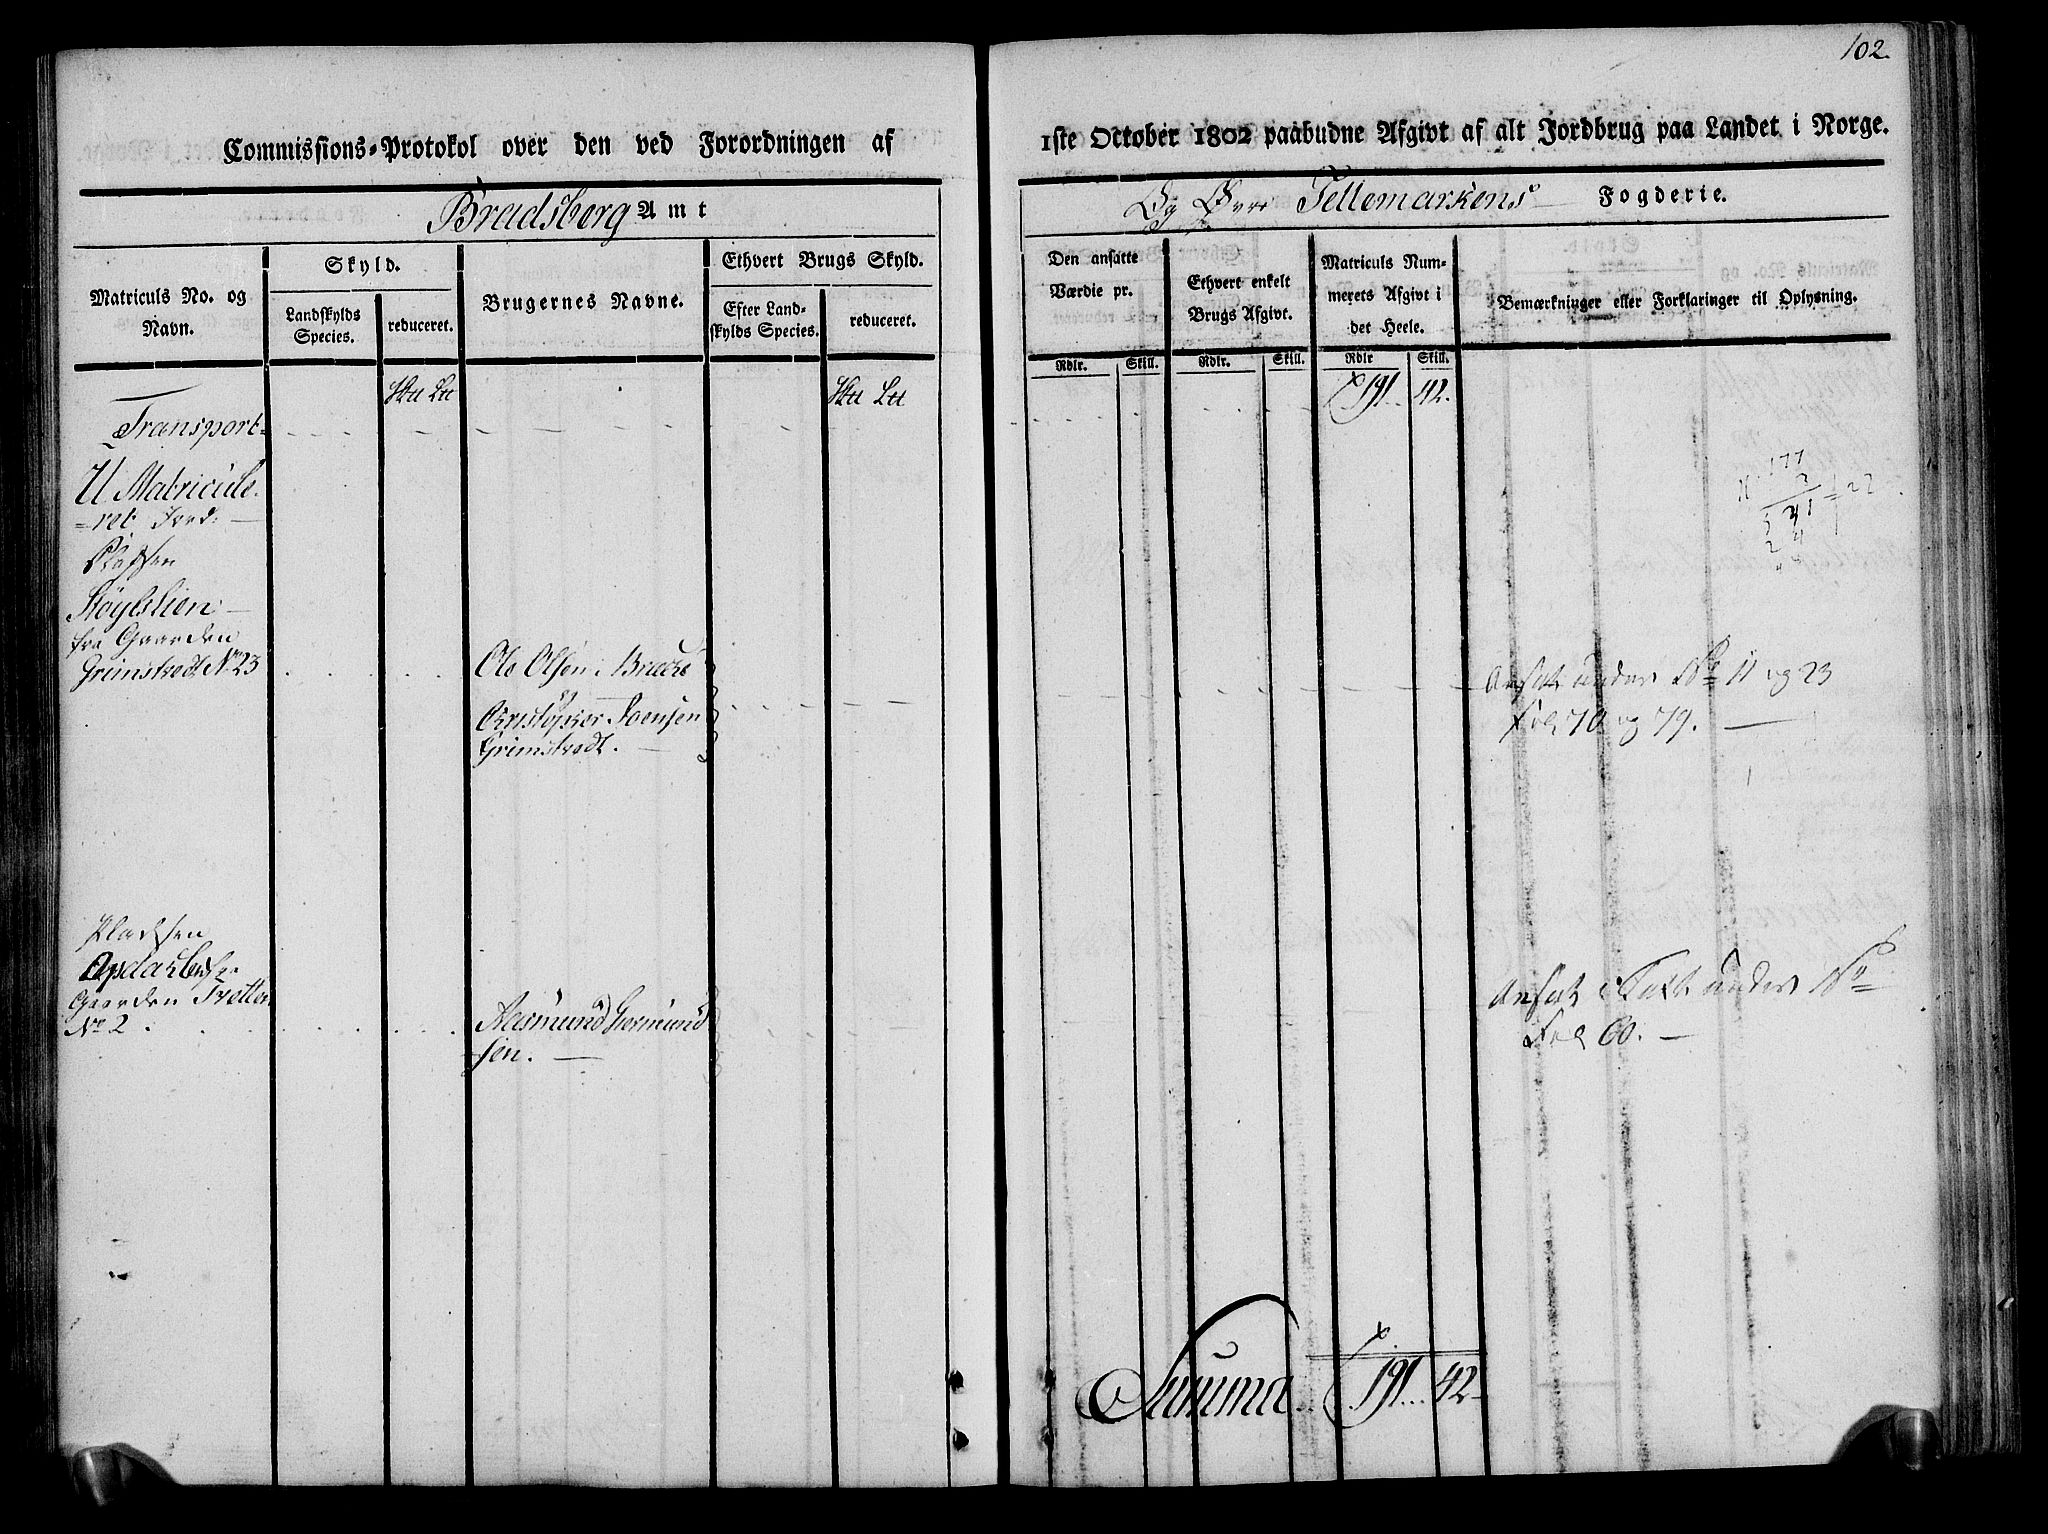 102.
Commissions-Protokol over den ved Forordningen af
1ste October 1802 paabudne Afgivt af alt Jordbrug paa Landet i Norge.
Bradsberg Amt
Og Øvre Tellemarkens Fogderie.
Matriculs No. og Navn.
Skyld.
Landskylds Species.
reduceret.
Brugernes Navne.
Ethvert Brugs Skyld.
Efter Land-
skylds Species.
reduceret.
Den ansatte
Værdie pr.
Ethvert enkelt
Brugs Afgivt.
Matriculs Num-
merets Afgivt i
det Heele.
Bemærkninger eller Forklaringer til Oplysning.
Rdlr. Skill. Rdlr. Skill. Rdlr Skill.
Transport
191. 42.
U Matricule
=ret Jord:
Pladsen
Støylslien
fra Gaarden
Grimstvedt No 23
Ole Olsen i Bræke
og
Christopher Joensen
Grimstvedt.
Ansat under No 11 og 23
Fol 70 og 79.
Pladsen
Opdalslien fra
Gaarden Tvetten
No 2
Aasmund Germund
sen.
Ansat i Takt under No
Fol 60.
Summa 191. 42